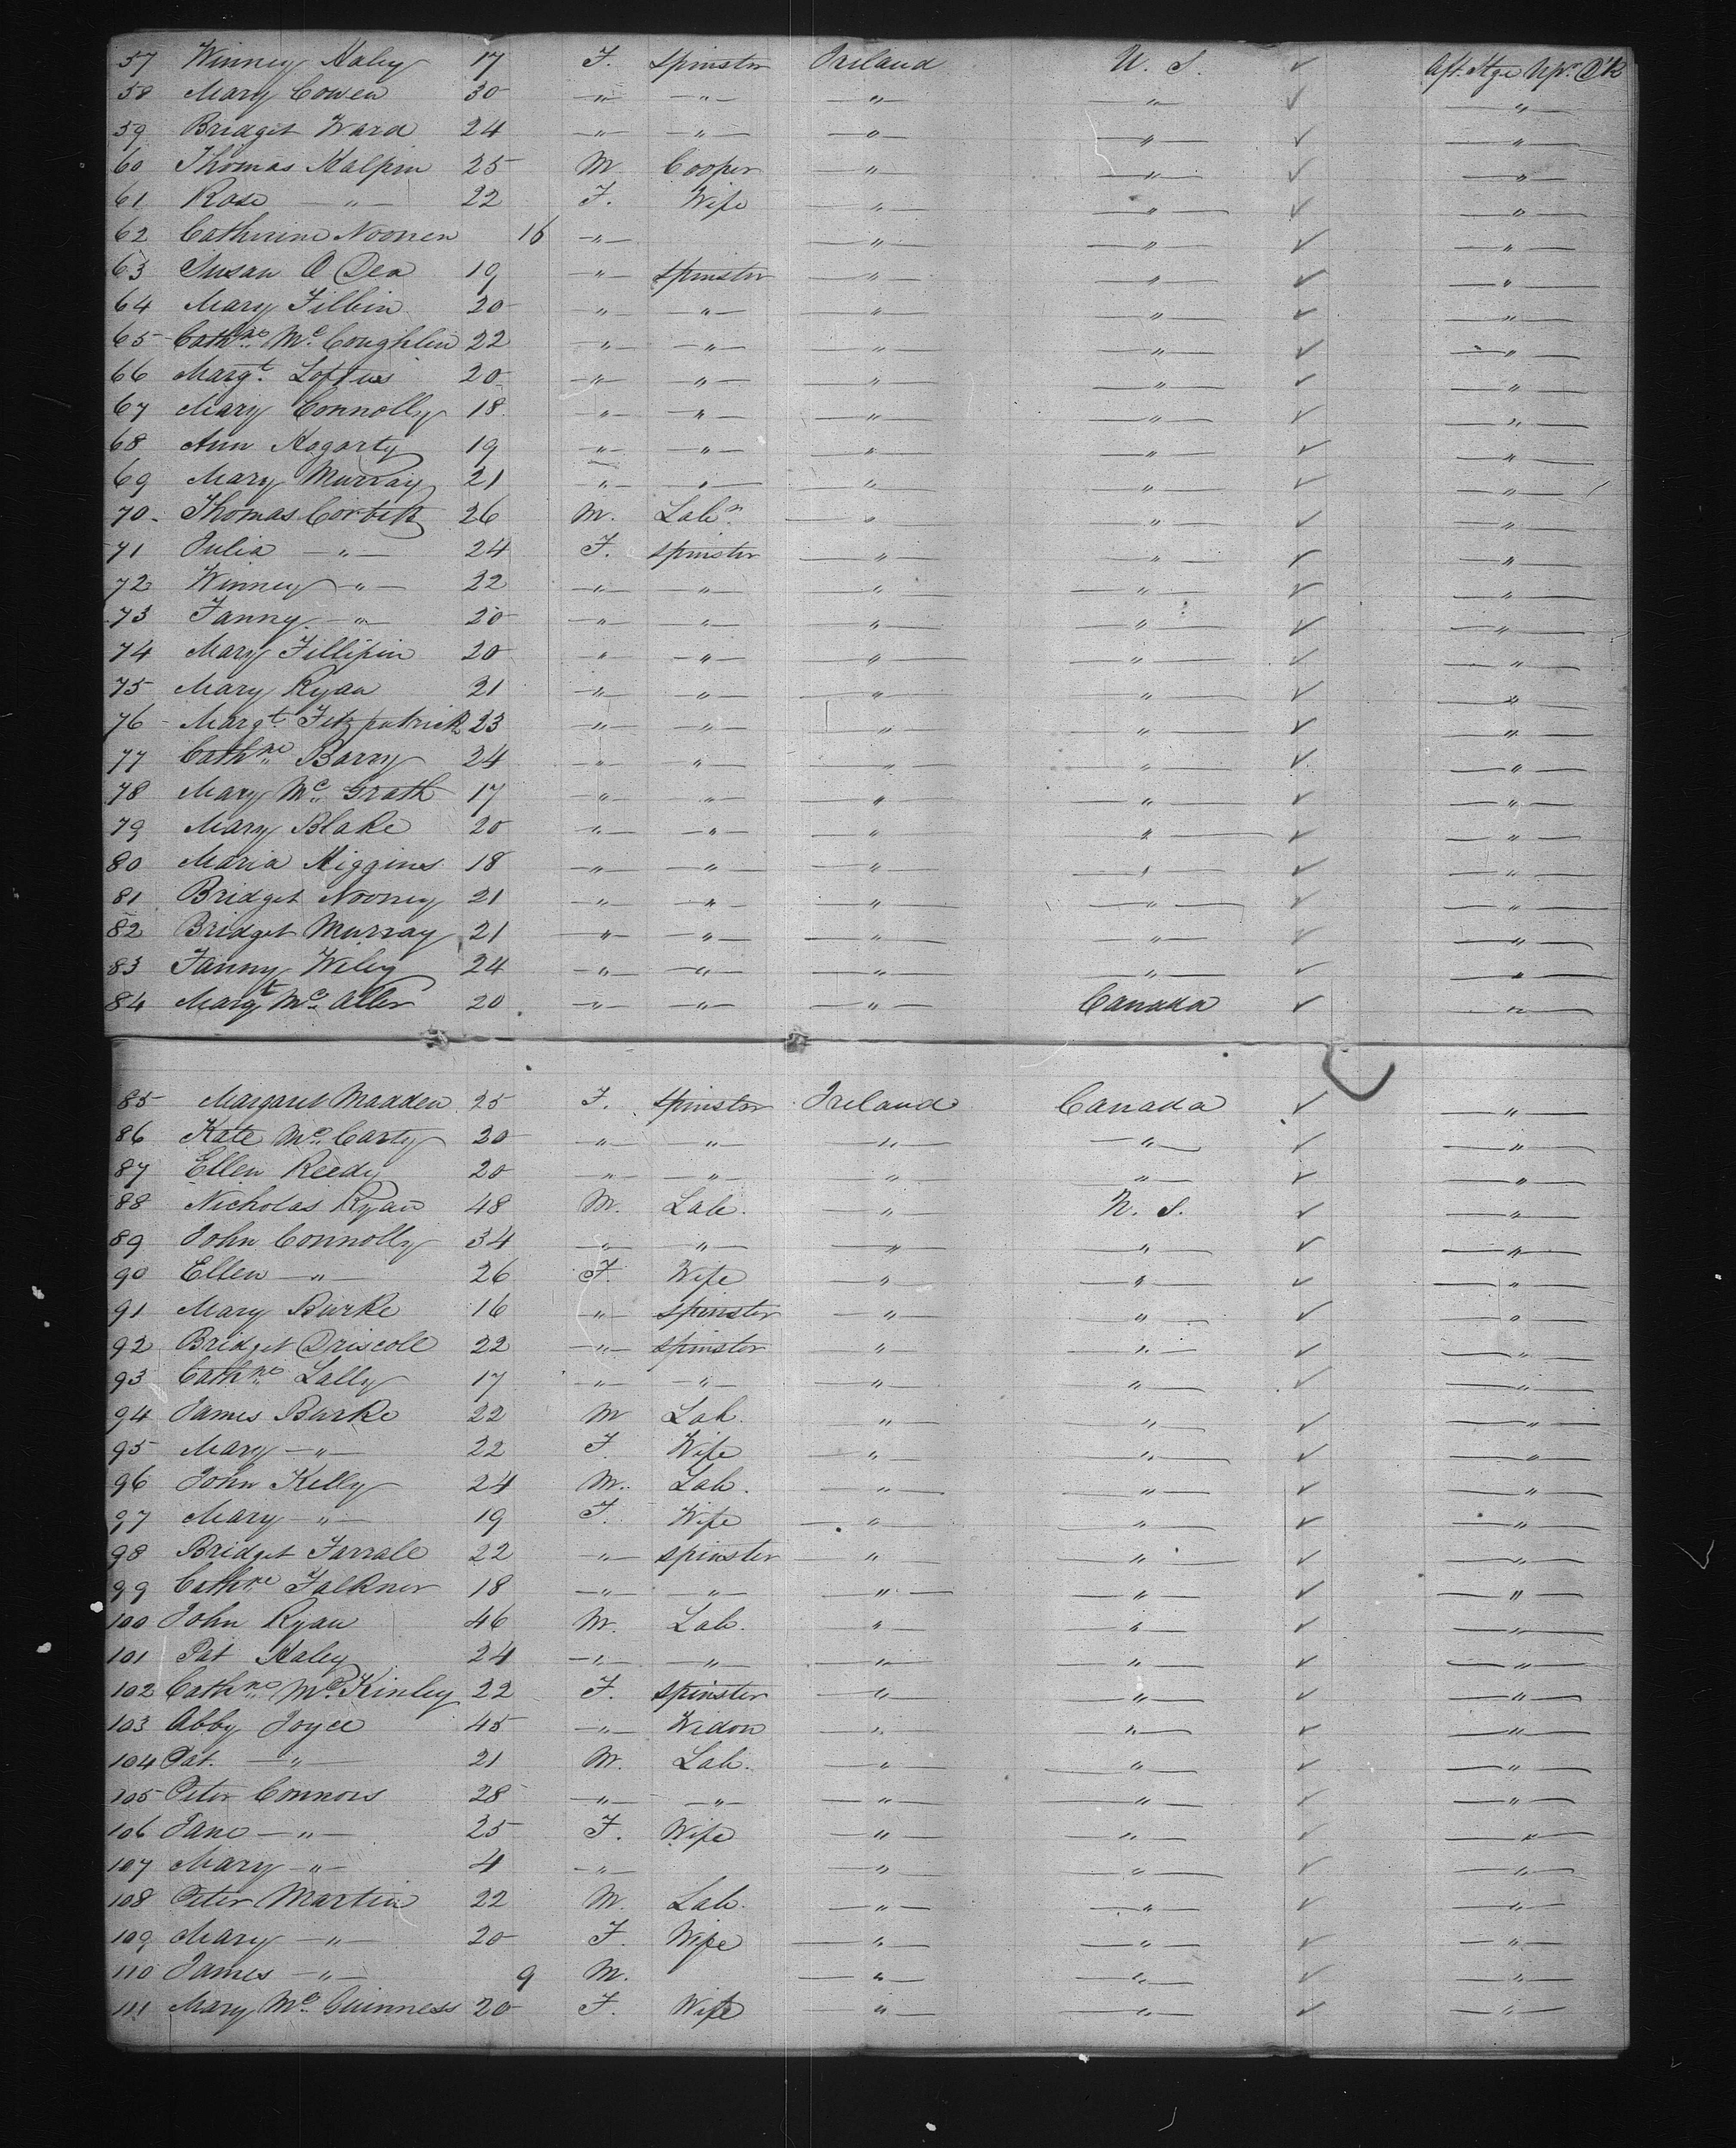 57 Winney Haley 17 F. Spinster Ireland U. S. ✓ Aft. Stge Upr. D'k
58 Mary Cowen 30 " " " " ✓ "
59 Bridget Ward 24 " " " " ✓ "
60 Thomas Halpin 25 M. Cooper " " ✓ "
61 Rose " 22 F. Wife " " ✓ "
62 Catherine Noonen 16 " " " ✓ "
63 Susan O Dea 19 " Spinster " " ✓ "
64 Mary Filbin 20 " " " " ✓ "
65 Cathne Mc Coughlin 22 " " " " ✓ "
66 Margt. Loftus 20 " " " " ✓ "
67 Mary Connolly 18 " " " " ✓ "
68 Ann Hogarty 19 " " " " ✓ "
69 Mary Murray 21 " " " " ✓ "
70 Thomas Corbett 26 M. Labr. " " ✓ "
71 Julia " 24 F. Spinster " " ✓ "
72 Winney " 22 " " " " ✓ "
73 Fanny " 20 " " " " ✓ "
74 Mary Fillipin 20 " " " " ✓ "
75 Mary Ryan 21 " " " " ✓ "
76 Margt. Fitzpatrick 23 " " " " ✓ "
77 Cathne Barry 24 " " " " ✓ "
78 Mary Mc Grath 17 " " " " ✓ "
79 Mary Blake 20 " " " " ✓ "
80 Maria Higgins 18 " " " " ✓ "
81 Bridget Nooney 21 " " " " ✓ "
82 Bridget Murray 21 " " " " ✓ "
83 Fanny Wiley 24 " " " " ✓ "
84 Margt Mc 20 " " " Canada ✓ "
85 Margaret Madden 25 F. Spinster Ireland Canada ✓ "
86 Kate Mc Carty 20 " " " " ✓ "
87 Ellen Reedy 20 " " " " ✓ "
88 Nicholas Ryan 48 M. Lab. " U. S. ✓ "
89 John Connolly 34 " " " " ✓ "
90 Ellen " 26 F. Wife " " ✓ "
91 Mary Burke 16 " Spinster " " ✓ "
92 Bridget Driscoll 22 " Spinster " " ✓ "
93 Cathne Lally 17 " " " " ✓ "
94 James Burke 22 M Lab. " " ✓ "
95 Mary " 22 F. Wife " " ✓ "
96 John Kelly 24 M. Lab. " " ✓ "
97 Mary " 19 F. Wife " " ✓ "
98 Bridget Farrale 22 " Spinster " " ✓ "
99 Cathne Falkner 18 " " " " ✓ "
100 John Ryan 46 M. Lab. " " ✓ "
101 Pat Haley 24 " " " " ✓ "
102 Cathne McKinley 22 F. Spinster " " ✓ "
103 Abby Joyce 45 " Widow " " ✓ "
104 Pat. " 21 M. Lab. " " ✓ "
105 Peter Connors 28 " " " " ✓ "
106 Jane " 25 F. Wife " " ✓ "
107 Mary " 4 " " " ✓ "
108 Peter Martin 22 M. Lab. " " ✓ "
109 Mary " 20 F. Wife " " ✓ "
110 James " 9 M. " " ✓ "
111 Mary Mc Guinness 20 F. Wife " " ✓ "